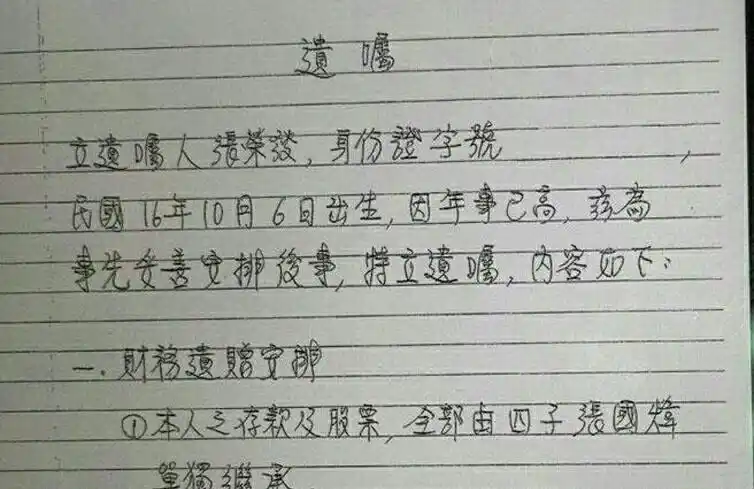 遺囑
立遺囑人張榮發，身份證字號　　　　，
民國16年10月6日出生，因年事已高，茲為
事先妥善安排後事，特立遺囑，內容如下：
一．財務遺贈安排
①本人之存款及股票，全部由四子張國煒
單獨繼承